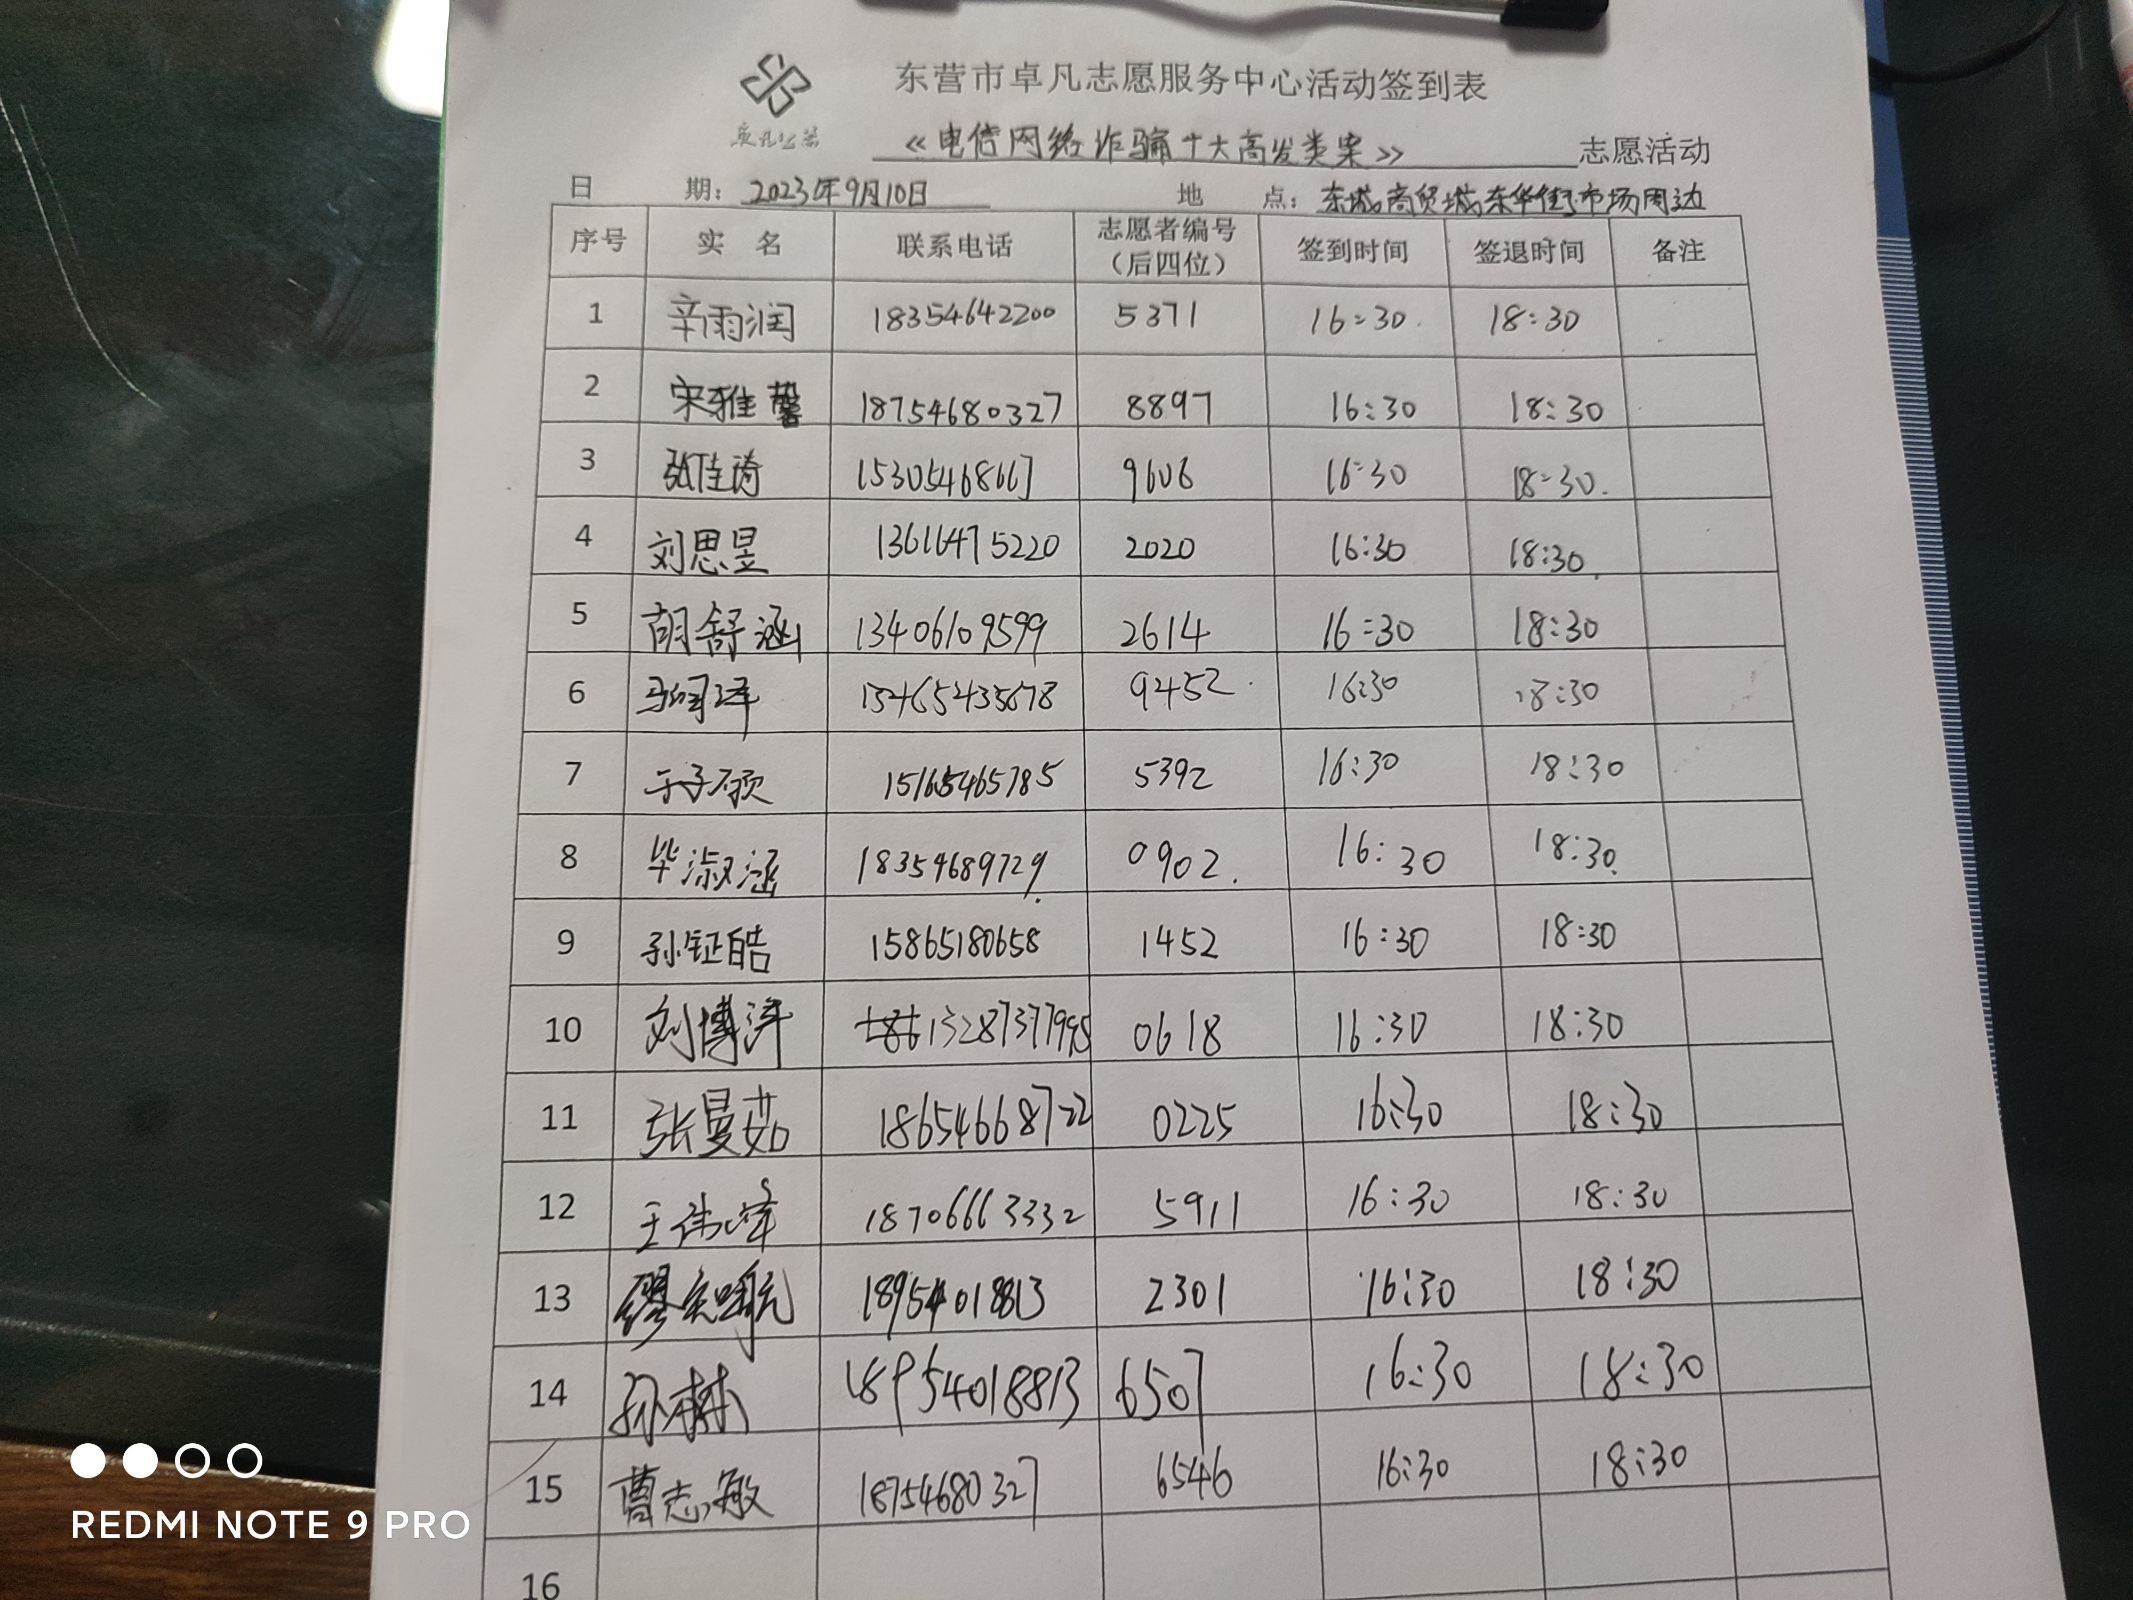 东营市卓凡志愿服务中心活动签到表
《电信网络诈骗十大高发类案》 志愿活动
日 期：2023年9月10日 地 点：东城商贸城东华街市场周边
序号 实 名 联系电话 志愿者编号（后四位） 签到时间 签退时间 备注
1 辛雨润 18354642200 5371 16:30 18:30
2 宋雅馨 18754680327 8897 16:30 18:30
3 张佳琦 15305468667 9606 16:30 18:30
4 刘思昱 13616475220 2020 16:30 18:30
5 胡舒涵 13406109599 2614 16:30 18:30
6 15465435678 9452 16:30 18:30
7 于子硕 15165465785 5392 16:30 18:30
8 毕淑涵 18354689729 0902 16:30 18:30
9 孙钲皓 15865180658 1452 16:30 18:30
10 刘博洋 13287377995 0618 16:30 18:30
11 张曼茹 18654668722 0225 16:30 18:30
12 王伟峰 18706663332 5911 16:30 18:30
13 18954018813 2301 16:30 18:30
14 孙栋 18954018813 6507 16:30 18:30
15 曹志敏 18754680327 6546 16:30 18:30
16
REDMI NOTE 9 PRO